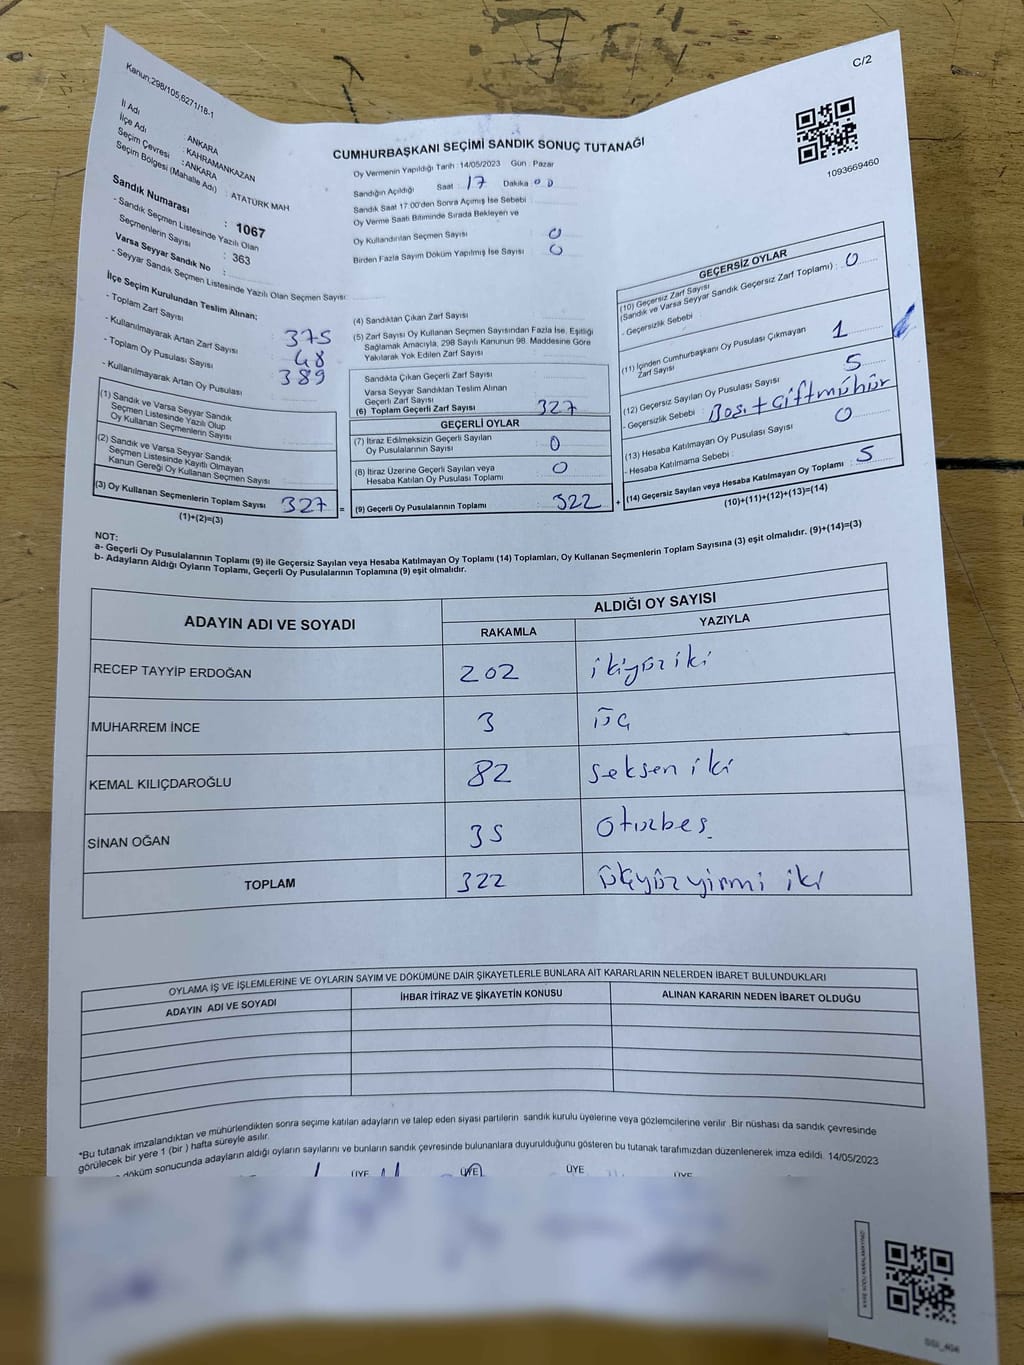 C/2
Kanun:298/105,6271/18-1
1093669460
CUMHURBAŞKANI SEÇİMİ SANDIK SONUÇ TUTANAĞI
İl Adı : ANKARA
İlçe Adı : KAHRAMANKAZAN
Seçim Çevresi : ANKARA
Seçim Bölgesi (Mahalle Adı) : ATATÜRK MAH
Sandık Numarası : 1067
- Sandık Seçmen Listesinde Yazılı Olan
Seçmenlerin Sayısı : 363
Varsa Seyyar Sandık No :
- Seyyar Sandık Seçmen Listesinde Yazılı Olan Seçmen Sayısı:
Oy Vermenin Yapıldığı Tarih : 14/05/2023 Gün : Pazar
Sandığın Açıldığı Saat : 17 Dakika 00
Sandık Saat 17:00'den Sonra Açımış İse Sebebi
Oy Verme Saati Bitiminde Sırada Bekleyen ve
Oy Kullandırılan Seçmen Sayısı : 0
Birden Fazla Sayım Döküm Yapılmış İse Sayısı : 0
İlçe Seçim Kurulundan Teslim Alınan;
- Toplam Zarf Sayısı : 375
- Kullanılmayarak Artan Zarf Sayısı : 48
- Toplam Oy Pusulası Sayısı : 389
- Kullanılmayarak Artan Oy Pusulası
(1) Sandık ve Varsa Seyyar Sandık
Seçmen Listesinde Yazılı Olup
Oy Kullanan Seçmenlerin Sayısı
(2) Sandık ve Varsa Seyyar Sandık
Seçmen Listesinde Kayıtlı Olmayan
Kanun Gereği Oy Kullanan Seçmen Sayısı
(3) Oy Kullanan Seçmenlerin Toplam Sayısı 327
(1)+(2)=(3)
(4) Sandıktan Çıkan Zarf Sayısı
(5) Zarf Sayısı Oy Kullanan Seçmen Sayısından Fazla İse, Eşitliği
Sağlamak Amacıyla, 298 Sayılı Kanunun 98. Maddesine Göre
Yakılarak Yok Edilen Zarf Sayısı
Sandıkta Çıkan Geçerli Zarf Sayısı
Varsa Seyyar Sandıktan Teslim Alınan
Geçerli Zarf Sayısı
(6) Toplam Geçerli Zarf Sayısı 327
GEÇERLİ OYLAR
(7) İtiraz Edilmeksizin Geçerli Sayılan
Oy Pusulasının Sayısı 0
(8) İtiraz Üzerine Geçerli Sayılan veya
Hesaba Katılan Oy Pusulası Toplamı 0
= (9) Geçerli Oy Pusulalarının Toplamı 322
GEÇERSİZ OYLAR
(10) Geçersiz Zarf Sayısı
(Sandık ve Varsa Seyyar Sandık Geçersiz Zarf Toplamı) : 0
- Geçersizlik Sebebi :
(11) İçinden Cumhurbaşkanı Oy Pusulası Çıkmayan
Zarf Sayısı : 1
(12) Geçersiz Sayılan Oy Pusulası Sayısı : 5
- Geçersizlik Sebebi : Boş + çift mühür
(13) Hesaba Katılmayan Oy Pusulası Sayısı : 0
- Hesaba Katılmama Sebebi :
+ (14) Geçersiz Sayılan veya Hesaba Katılmayan Oy Toplamı : 5
(10)+(11)+(12)+(13)=(14)
NOT:
a- Geçerli Oy Pusulalarının Toplamı (9) ile Geçersiz Sayılan veya Hesaba Katılmayan Oy Toplamı (14) Toplamları, Oy Kullanan Seçmenlerin Toplam Sayısına (3) eşit olmalıdır. (9)+(14)=(3)
b- Adayların Aldığı Oyların Toplamı, Geçerli Oy Pusulalarının Toplamına (9) eşit olmalıdır.
ADAYIN ADI VE SOYADI
ALDIĞI OY SAYISI
RAKAMLA YAZIYLA
RECEP TAYYİP ERDOĞAN 202 ikiyüz iki
MUHARREM İNCE 3 üç
KEMAL KILIÇDAROĞLU 82 seksen iki
SİNAN OĞAN 35 otuzbeş
TOPLAM 322 üçyüzyirmi iki
OYLAMA İŞ VE İŞLEMLERİNE VE OYLARIN SAYIM VE DÖKÜMÜNE DAİR ŞİKAYETLERLE BUNLARA AİT KARARLARIN NELERDEN İBARET BULUNDUKLARI
ADAYIN ADI VE SOYADI İHBAR İTİRAZ VE ŞİKAYETİN KONUSU ALINAN KARARIN NEDEN İBARET OLDUĞU
*Bu tutanak imzalandıktan ve mühürlendikten sonra seçime katılan adayların ve talep eden siyasi partilerin sandık kurulu üyelerine veya gözlemcilerine verilir. Bir nüshası da sandık çevresinde
görülecek bir yere 1 (bir ) hafta süreyle asılır.
döküm sonucunda adayların aldığı oyların sayılarını ve bunların sandık çevresinde bulunanlara duyurulduğunu gösteren bu tutanak tarafımızdan düzenlenerek imza edildi. 14/05/2023
ÜYE ÜYE ÜYE ÜYE